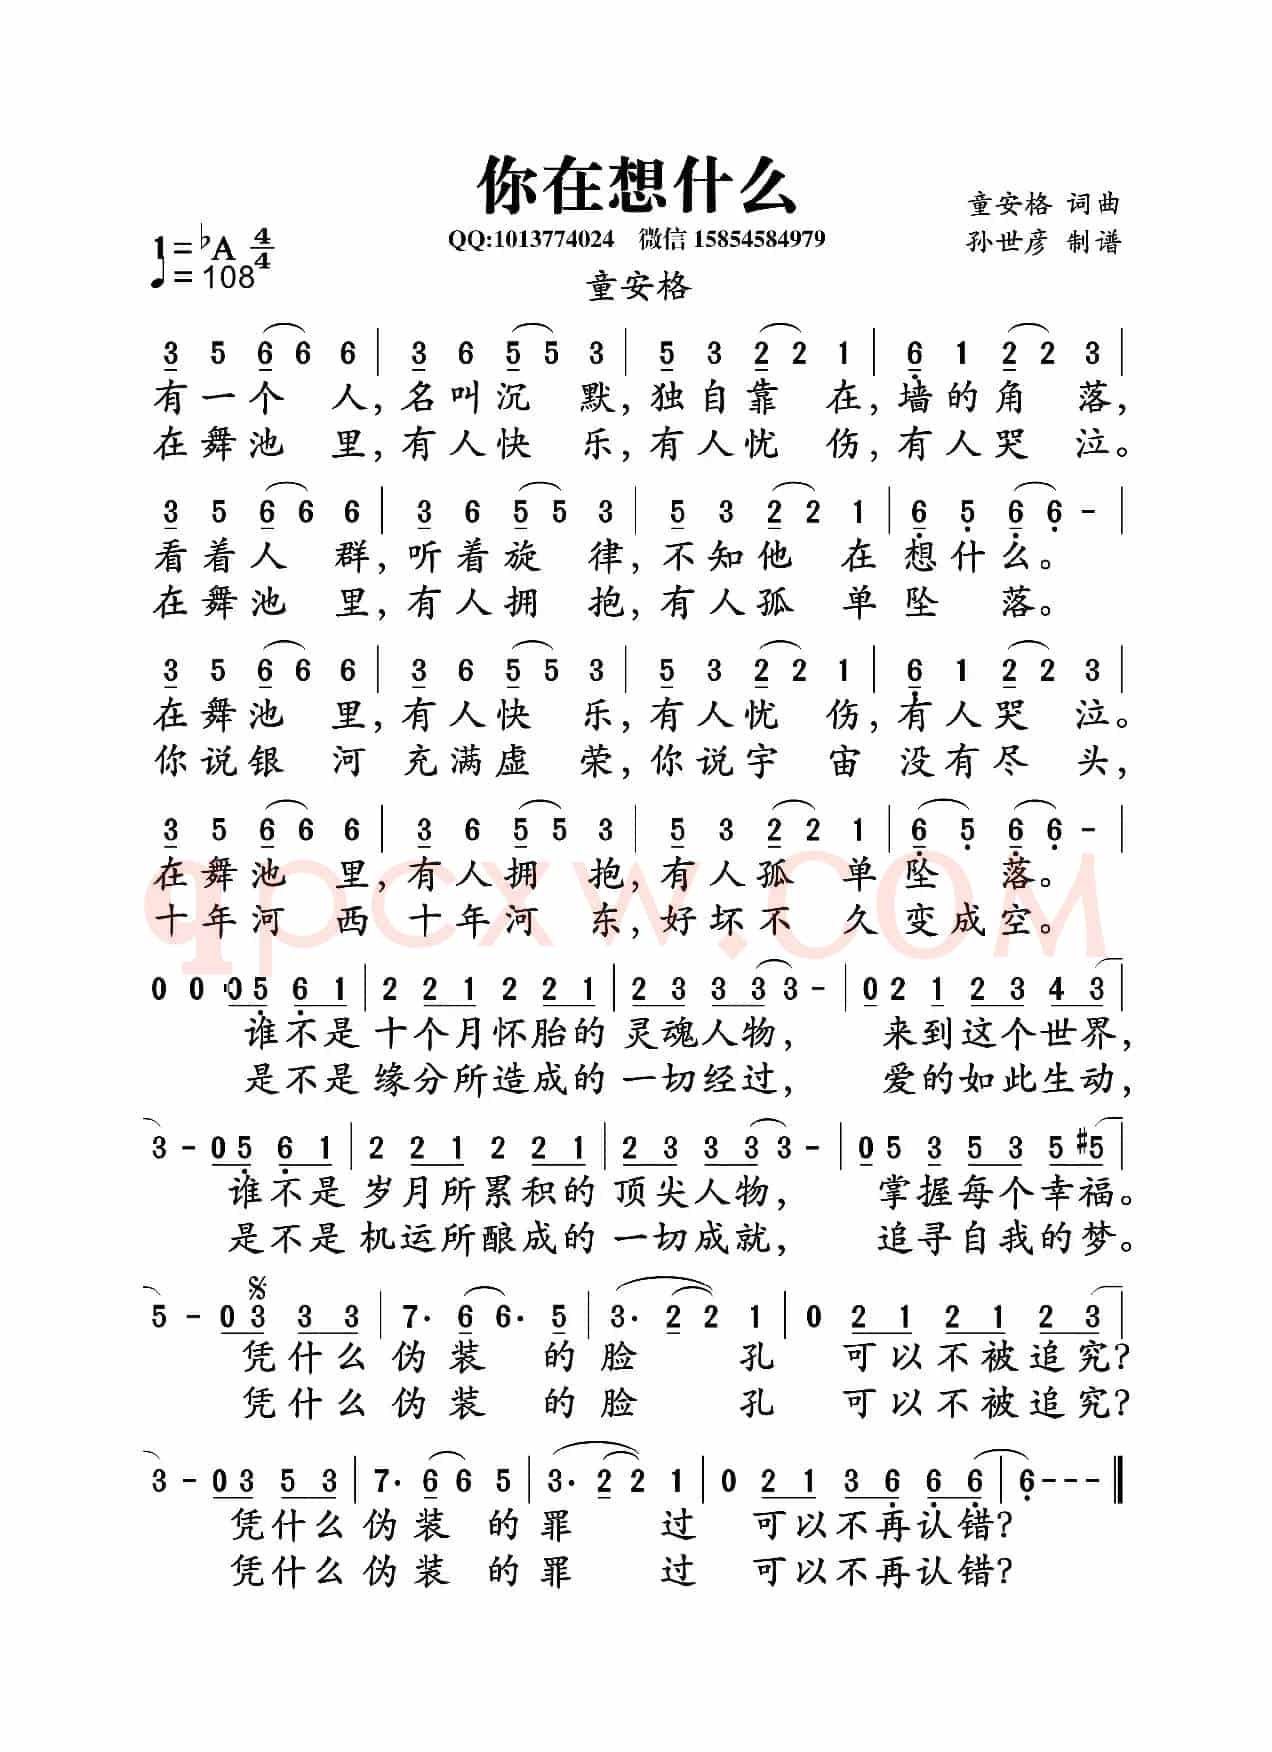 你在想什么
童安格 词曲
1=♭A 4/4
QQ:1013774024 微信 15854584979
孙世彦 制谱
♩=108
童安格
3 5 6 6 6 | 3 6 5 5 3 | 5 3 2 2 1 | 6 1 2 2 3 |
有一个 人,名叫沉 默,独自靠 在,墙的角 落,
在舞池 里,有人快 乐,有人忧 伤,有人哭 泣。
3 5 6 6 6 | 3 6 5 5 3 | 5 3 2 2 1 | 6 5 6 6 - |
看着人 群,听着旋 律,不知他 在 想什么。
在舞池 里,有人拥 抱,有人孤 单坠 落。
3 5 6 6 6 | 3 6 5 5 3 | 5 3 2 2 1 | 6 1 2 2 3 |
在舞池 里,有人快 乐,有人忧 伤,有人哭 泣。
你说银 河 充满虚 荣,你说宇 宙 没有尽 头,
3 5 6 6 6 | 3 6 5 5 3 | 5 3 2 2 1 | 6 5 6 6 - |
在舞池 里,有人拥 抱,有人孤 单坠 落。
十年河 西 十年河 东,好坏不 久变成空。
qpcxw.COM
0 0 0 5 6 1 | 2 2 1 2 2 1 | 2 3 3 3 3 - | 0 2 1 2 3 4 3 |
谁不是 十个月怀胎的 灵魂人物, 来到这个世界,
是不是 缘分所造成的 一切经过, 爱的如此生动,
3 - 0 5 6 1 | 2 2 1 2 2 1 | 2 3 3 3 3 - | 0 5 3 5 3 5 #5 |
谁不是 岁月所累积的 顶尖人物, 掌握每个幸福。
是不是 机运所酿成的 一切成就, 追寻自我的梦。
𝄋
5 - 0 3 3 3 | 7· 6 6· 5 | 3· 2 2 1 | 0 2 1 2 1 2 3 |
凭什么 伪装 的脸 孔 可以不被追究?
凭什么 伪装 的脸 孔 可以不被追究?
3 - 0 3 5 3 | 7· 6 6 5 | 3· 2 2 1 | 0 2 1 3 6 6 6 | 6 - - - ‖
凭什么 伪装 的罪 过 可以不再认错?
凭什么 伪装 的罪 过 可以不再认错?